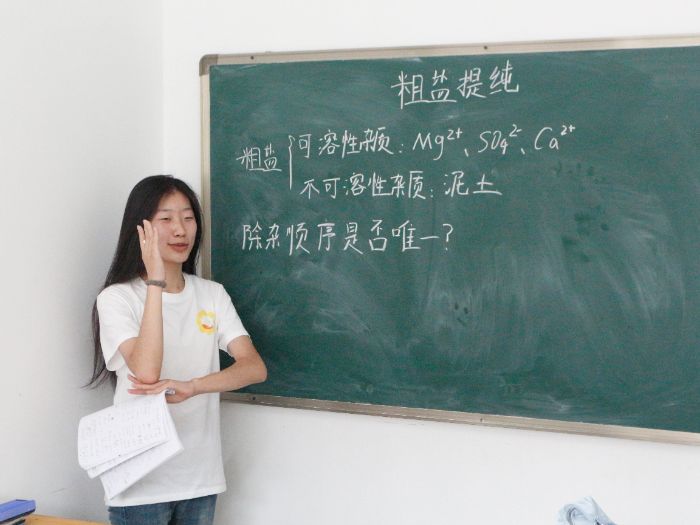 粗盐提纯
粗盐 { 可溶性杂质: Mg²⁺、SO₄²⁻、Ca²⁺
不可溶性杂质: 泥土
除杂顺序是否唯一?